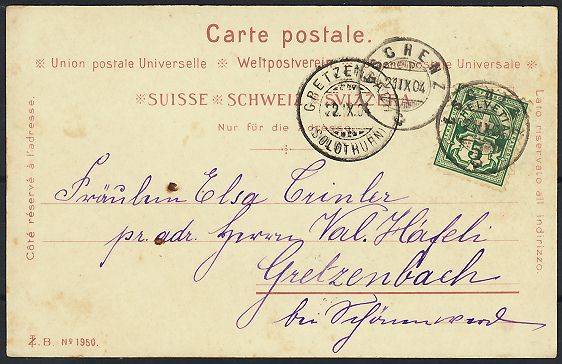 Carte postale.
※ Union postale Universelle ※ Weltpostverein ※ postale Universale ※
※ SUISSE ※ SCHWEIZ ※ SVIZZERA
Nur für die Adresse.
Côté réservé à l'adresse.
Lato riservato all indirizzo.
GRETZENBACH
(SOLOTHURN)
IX.04
HELVETIA
5
Fräulein Elsa
pr. adr. Herrn Val. Hafeli
Gretzenbach
bei Schönenwerd
Z.B. No 1950.